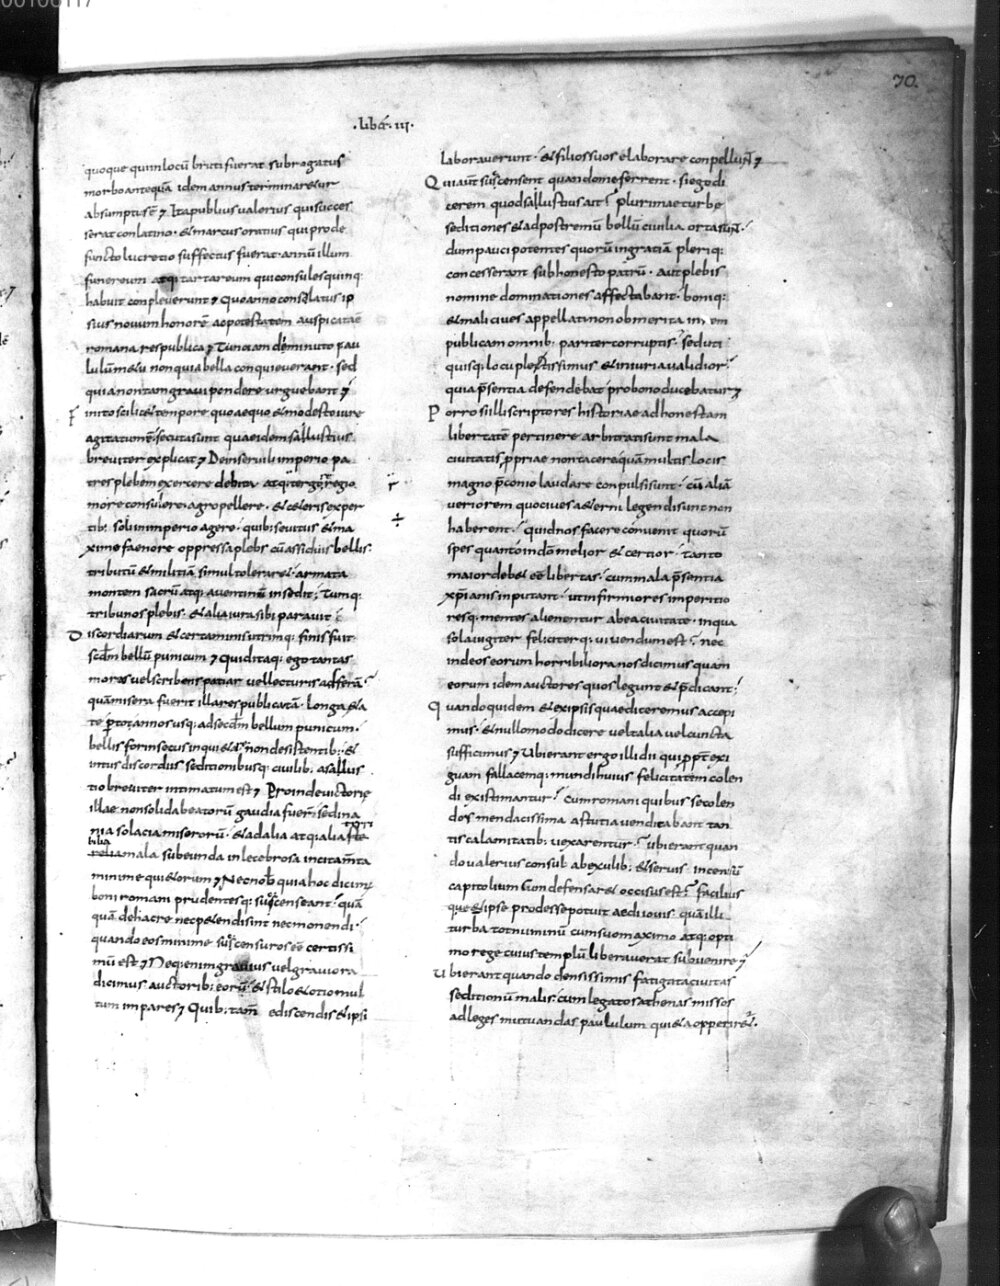 70
·liber·iii·
quoque qui in locũ bruti fuerat subrogatus
morbo antequã idem annus terminaretur
absumptus ẽ; Ita publius valerius qui succes
serat conlatino· & marcus oratius qui pro de
functo lucretio suffectus fuerat· annũ illum
funereum atq; tartareum qui consules quinq;
habuit conpleverunt; Quo anno consulatus ip
sius novum honorẽ ac potestatem auspicata ẽ
romana res publica; Tunc iam deminuto pau
lulũ metu non quia bella conquieverant· sed
quia non tam gravi pondere urguebant;
finito scilic& tempore quo aequo & modesto iure
agitatum ẽ· secuta sunt quae idem sallustius
breviter explicat; Dein servili imperio pa
tres plebem exercere de vita atq; tergo regio
more consulere· agro pellere· & ceteris exper
tib; soli in imperio agere· quib; sevitiis & ma
xime faenore oppressa plebs cũ assiduis bellis
tributũ & militiã simul toleraret· armata
montem sacrũ atq; aventinũ insedit; Tumq;
tribunos plebis· & alia iura sibi paravit;
Discordiarum & certaminis utrimq; finis fuit
scđm bellũ punicum; Quid itaq; ego tantas
moras vel scribens patiar vel lecturis adferã;
quã misera fuerit illa res publica tã longa &a
te p̃ tot annos usq; ad secđm bellum punicum·
bellis forinsecus inqui&are non desistentib; &
intus discordiis seditionibusq; civilib; a sallus
tio breviter intimatum est; Proinde victoriẹ
illae non solida beatorũ gaudia fuer̃· sed ina
nia solacia miserorũ· & ad alia atq; alia ste
relia mala subeunda inlecebrosa incitam̃ta
minime qui&orum; Nec nob̃ quia hoc dicimꝰ
boni romani prudentesq; suscenseant· quã
quã de hac re nec p&endi sint nec monendi·
quando eos minime suscensuros eẽ certissi
mũ est; Neq; enim gravius vel graviora
dicimus auctorib; eorũ & stilo & otio mul
tum impares; Quib; tam̃ ediscendis & ipsi
laboraverunt· & filios suos elaborare conpellunt;
Qui aut̃ suscensent quando me ferrent· si ego di
cerem quod sallustius ait; plurimae turbẹ
seditiones & ad postremũ bellũ civilia orta sunt·
dum pauci potentes quorũ in gratiã pleriq;
concesserant sub honesto patrũ· aut plebis
nomine dominationes affectabant· boniq;
& mali cives appellati non ob merita in rem
publicam omnib; pariter corruptis· sed uti
quisq; locupletissimus & iniuria validior·
quia p̃sentia defendebat pro bono ducebatur;
Porro si illi scriptores historiae ad honestam
libertatẽ pertinere arbitrati sunt mala
civitatis p̃priae non tacere quã multis locis
magno p̃conio laudare conpulsi sunt· cũ aliã
veriorem quo cives aeterni legendi sunt non
haberent· quid nos facere convenit quorũ
spes quanto in dõ melior & certior· tanto
maior deb& eẽ libertas· cum mala p̃sentia
xp̃ianis inputant· ut infirmiores imperitio
resq; mentes alienentur ab ea civitate· in qua
sola iugiter feliciterq; vivendum est; nec
in deos eorum horribiliora nos dicimus quam
eorum idem auctores quos legunt & p̃dicant;
Quando quidem & ex ipsis quae diceremus accepi
mus· & nullo modo dicere vel talia vel cuncta
sufficimus; Ubi erant ergo illi dii qui p̃pt̃ exi
guam fallacemq; mundi huius felicitatem colen
di existimantur· cum romani quibus se colen
dos mendacissima astutia venditabant tan
tis calamitatib; vexarentur; ubi erant quan
do valerius consul ab exulib; & servis incensũ
capitolium cum defensar& occisus est; facilius
que & ipse prodesse potuit aedi iovis· quã illi
turba tot numinũ cum suo maximo atq; opti
mo rege cuius templũ liberaverat subvenire;
Ubi erant quando densissimis fatigata civitas
seditionũ malis· cum legatos athenas missos
ad leges mutuandas paululum qui&a opperir&·